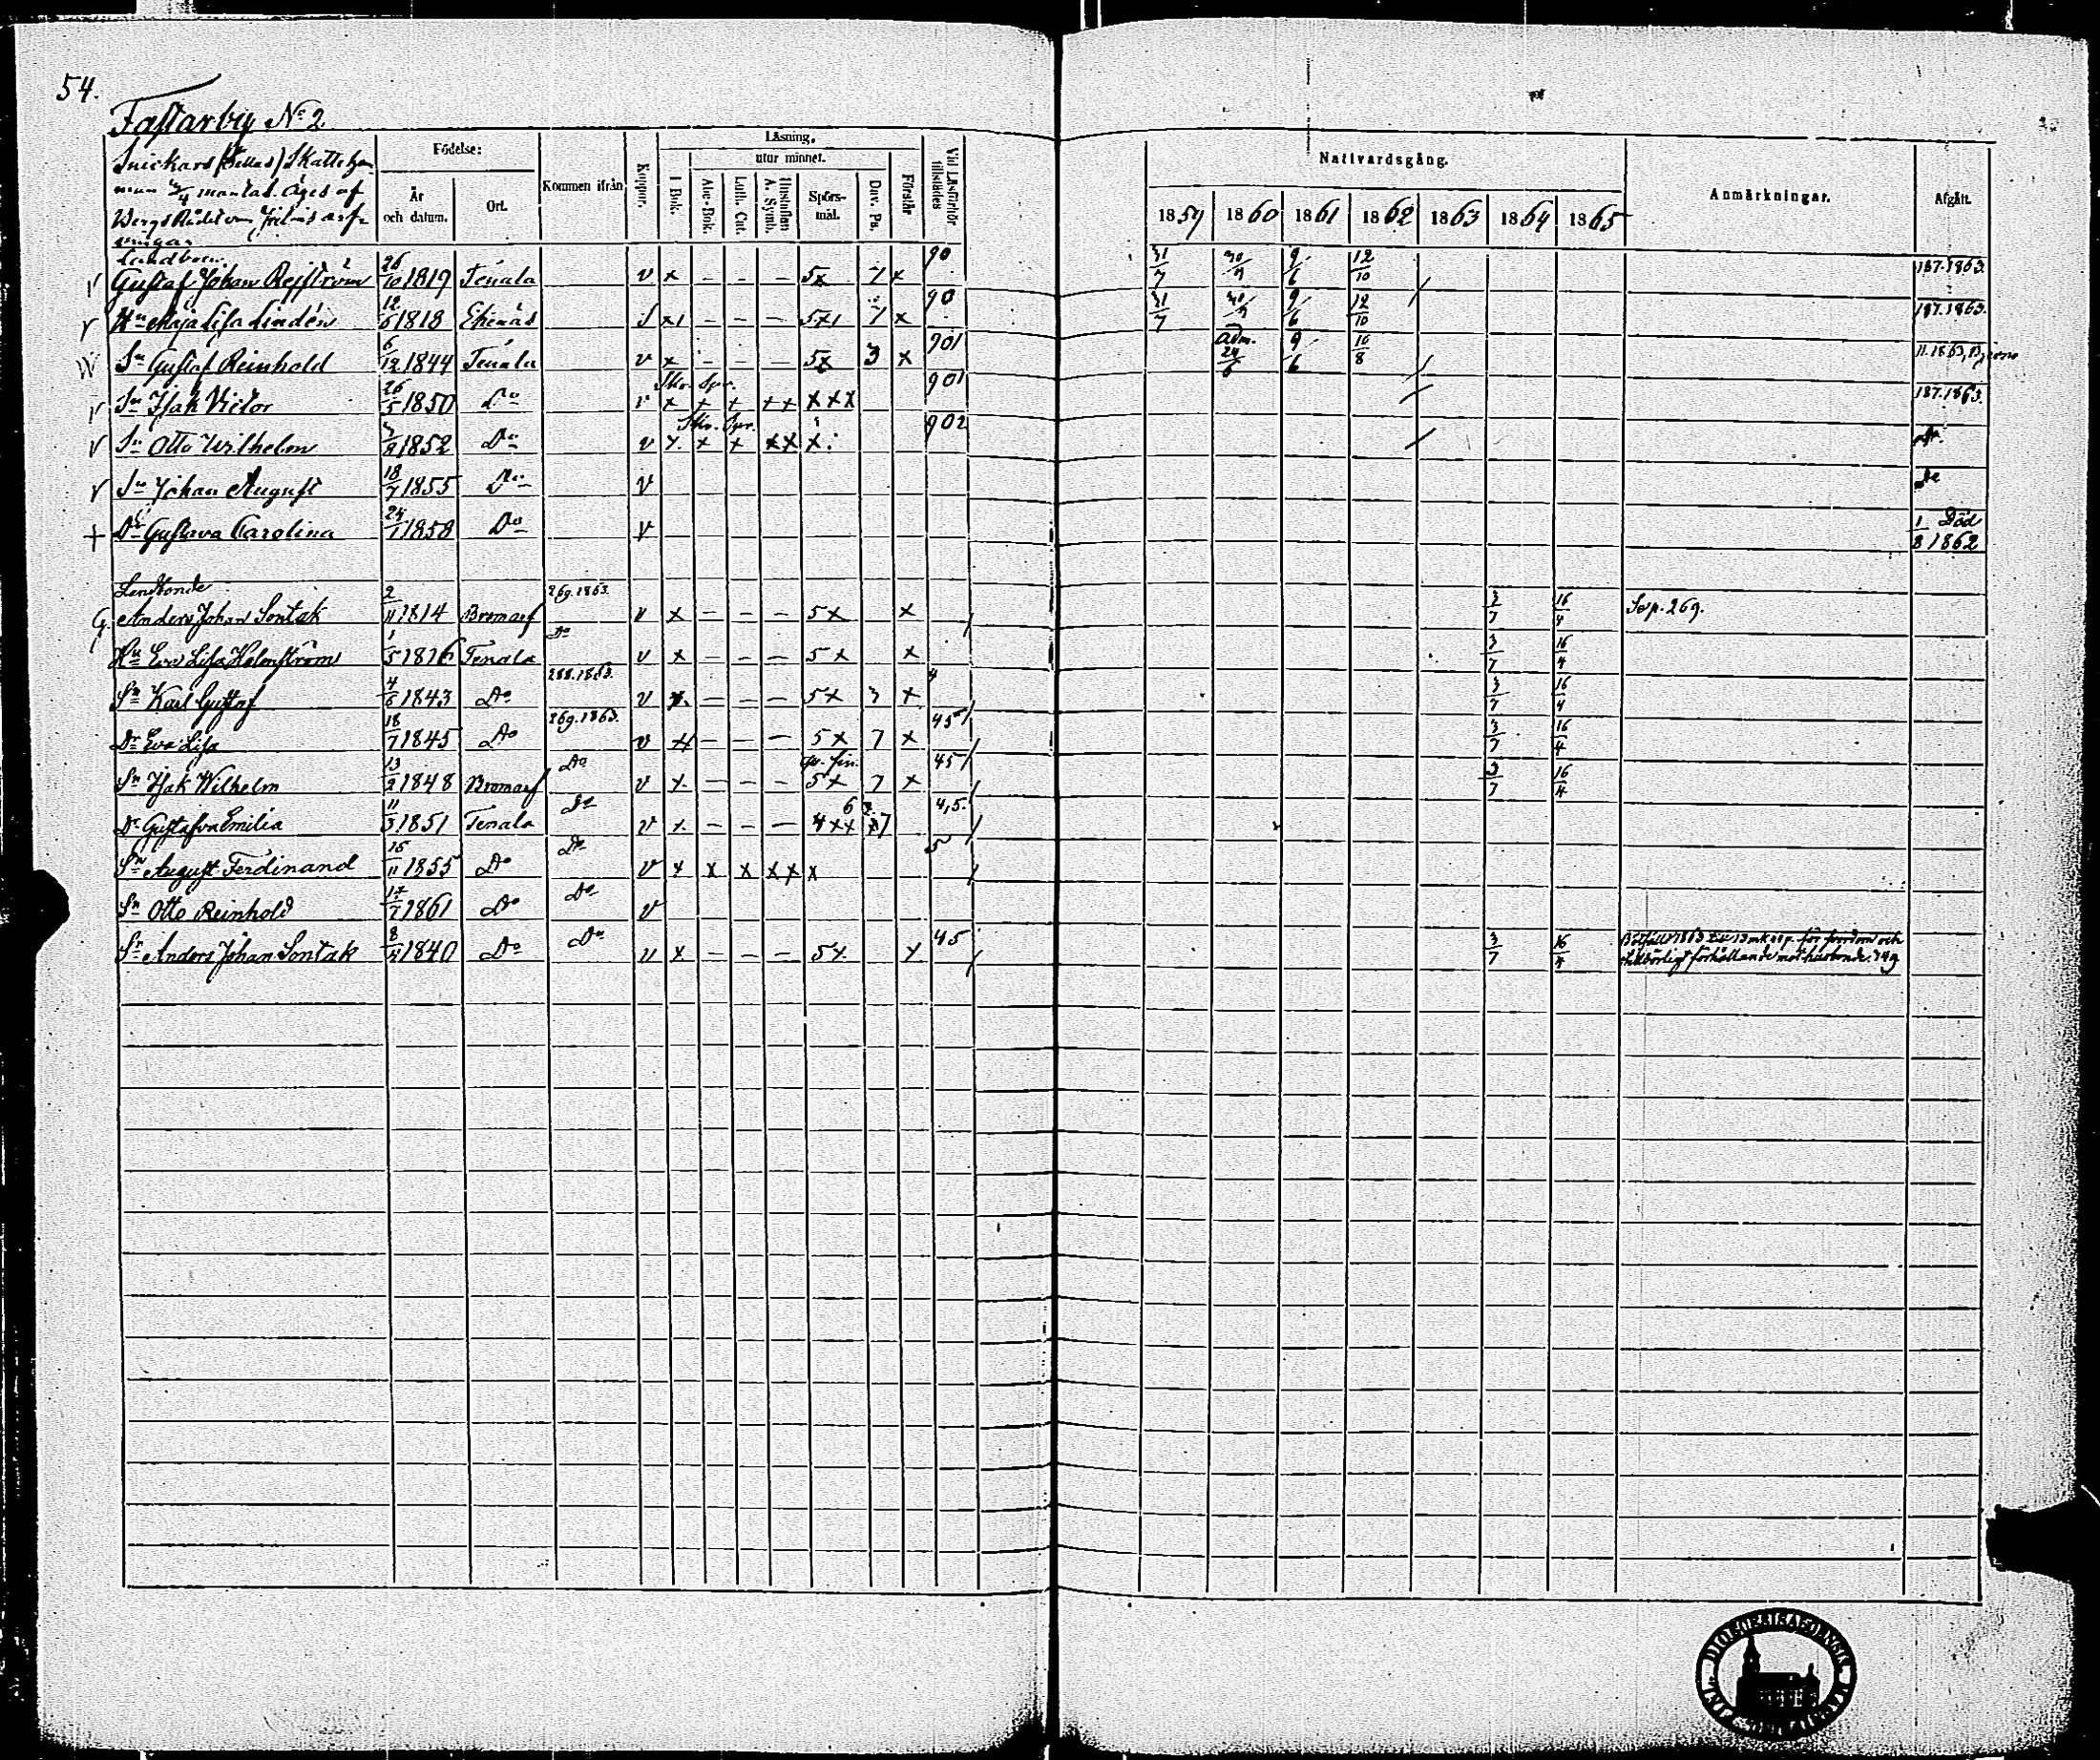 54.
Fastarby No 2
Snickars Skattehem-
man mantal. Äges af
Bergs Rådet von Julins arf-
vingar
Födelse:
År och datum.
Ort.
Kommen ifrån
Koppor.
Läsning.
utur minnet.
I Bok.
Abc-Bok.
Luth. Cat.
Hustaflan A. Symb.
Spörs-mål.
Dav. Ps.
Förstår
Vid Läsförhör tillstädes
Nattvardsgång.
1859 1860 1861 1862 1863 1864 1865
Anmärkningar.
Afgått.
Landbonden
Gustaf Johan Rejström 26/10 1819 Tenala v x – – – 5x 7 x 90 9/6 12/10 187.1863.
Hu Maja Lisa Lindén 12/5 1818 Ekenäs s x – – – 5x 7 x 90 9/6 12/10 187.1863.
Sn Gustaf Reinhold 6/12 1844 Tenala v x – – – 5x 3 x 901 Adm. 24/6 9/6 10/8
Sn Isak Victor 26/5 1850 Do v x + + ++ xxx 901 187.1863.
Sn Otto Wilhelm 1852 Do v x x + xx x 902
Sn Johan August 18/7 1855 Do v
Dr Gustava Carolina 24/1 1858 Do v 1/8 Död 1862
Landbonde
G. Anders Johan Sontak 2/11 1814 Bromarf 269.1863. v x – – – 5x x 3/7 16/4 Se p. 269.
Hu Eva Lisa Holmström 1/5 1816 Tenala Do v x – – – 5x x 3/7 16/4
Sn Karl Gustaf 4/6 1843 Do 288.1863. v x – – – 5x 7 x 4 3/7 16/4
Dr Eva Lisa 18/7 1845 Do 269.1863. v x – – – 5x 7 x 45 3/7 16/4
Sn Isak Wilhelm 13/2 1848 Bromarf Do v x – – – 5x 7 x 45 3/7 16/4
Dr Gustafva Emilia 11/3 1851 Tenala Do v x – – – 4xx 7 4,5.
Sn August Ferdinand 15/11 1855 Do Do v x x x xx x 5
Sn Otto Reinhold 1861 Do Do v
Sn Anders Johan Sontak 1840 Do Do v x – – – 5x x 45 3/7 16/4 Bötfälld 1863 för och
förhållande mot husbonde.